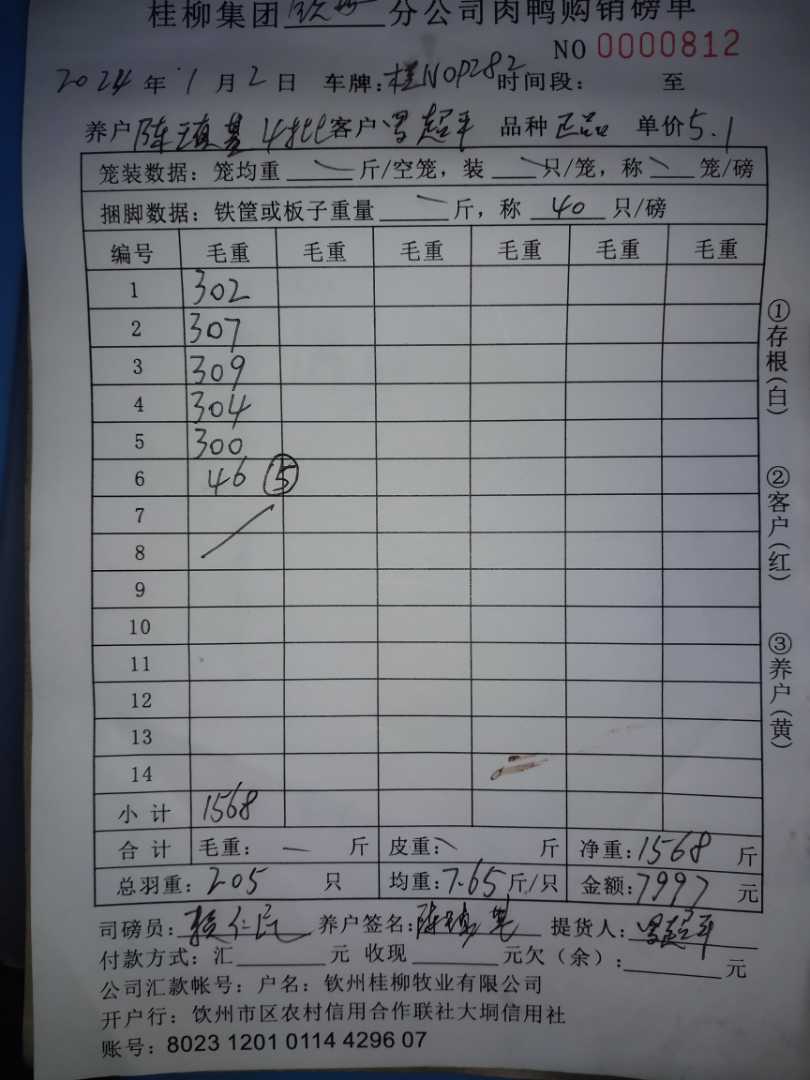 桂柳集团钦州分公司肉鸭购销磅单
NO 0000812
2024年1月2日 车牌:桂N0P282时间段: 至
养户 陈 4批客户 超平 品种 正品 单价5.1
笼装数据:笼均重 斤/空笼,装 只/笼,称 笼/磅
捆脚数据:铁筐或板子重量 斤,称 40 只/磅
编号 毛重 毛重 毛重 毛重 毛重 毛重
1 302
2 307
3 309
4 304
5 300
6 46 ⑤
7
8
9
10
11
12
13
14
小计 1568
合计 毛重: — 斤 皮重: 斤 净重:1568 斤
总羽重:205 只 均重:7.65斤/只 金额:7997 元
司磅员: 养户签名:陈 提货人: 超平
付款方式:汇 元 收现 元欠(余): 元
公司汇款帐号:户名:钦州桂柳牧业有限公司
开户行:饮州市区农村信用合作联社大垌信用社
账号:8023 1201 0114 4296 07
①存根(白)
②客户(红)
③养户(黄)